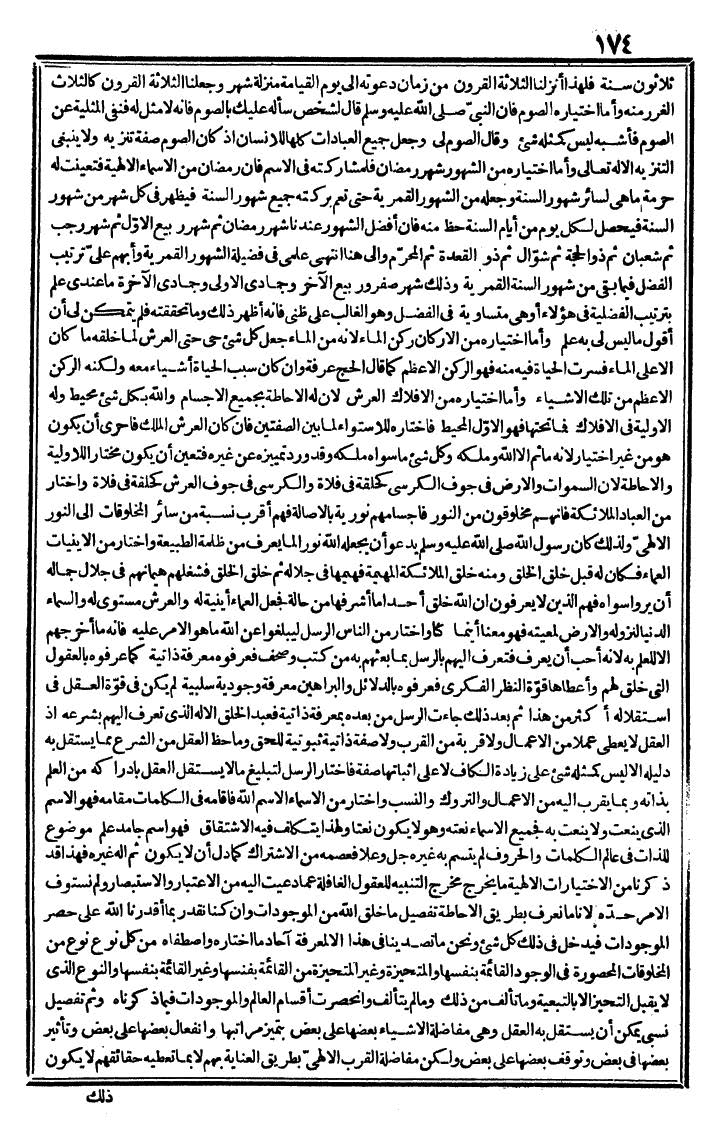 ١٧٤
ثلاثون سنة فلهذا أنزلنا الثلاثة القرون من زمان دعوته الى يوم القيامة منزلة شهر وجعلنا الثلاثة القرون كالثلاث
الغرر منه وأما اختياره الصوم فان النبي صلى الله عليه وسلم قال لشخص سأله عليك بالصوم فانه لا مثل له فنفى المثلية عن
الصوم فأشبه ليس كمثله شئ وقال الصوم لى وجعل جميع العبادات كلها للانسان اذ كان الصوم صفة تنزيه ولا ينبغى
التنزيه الا له تعالى وأما اختياره من الشهور شهر رمضان فلمشاركته فى الاسم فان رمضان من الاسماء الالهية فتعينت له
حرمة ماهى لسائر شهور السنة وجعله من الشهور القمرية حتى تعم بركته جميع شهور السنة فيظهر فى كل شهر من شهور
السنة فيحصل لكل يوم من أيام السنة حظ منه فان أفضل الشهور عندنا شهر رمضان ثم شهر ربيع الاول ثم شهر رجب
ثم شعبان ثم ذو الحجة ثم شوّال ثم ذو القعدة ثم المحرّم والى هنا انتهى علمى فى فضيلة الشهور القمرية وأبهم علىّ ترتيب
الفضل فيما بقى من شهور السنة القمرية وذلك شهر صفر وربيع الآخر وجمادى الاولى وجمادى الآخرة ما عندى علم
بترتيب الفضلية فى هؤلاء أو هى متساوية فى الفضل وهو الغالب على ظنى فانه أظهر ذلك وما تحققته فلم يتمكن لى أن
أقول ما ليس لى به علم وأما اختياره من الاركان ركن الماء لانه من الماء جعل كل شئ حى حتى العرش لما خلقه ما كان
الا على الماء فسرت الحياة فيه منه فهو الركن الاعظم كما قال الحج عرفة وان كان سبب الحياة أشياء معه ولكنه الركن
الاعظم من تلك الاشياء وأما اختياره من الافلاك العرش لان له الاحاطة بجميع الاجسام والله بكل شئ محيط وله
الاولية فى الافلاك فما تحتها فهو الاوّل المحيط فاختاره للاستواء لما بين الصفتين فان كان العرش الملك فاحرى أن يكون
هو من غير اختيار لانه ما ثم الا الله وملكه وكل شئ ما سواه ملكه وقد ورد تمييزه عن غيره فتعين أن يكون مختارا للاولية
والاحاطة لان السموات والارض فى جوف الكرسى كحلقة فى فلاة والكرسى فى جوف العرش كحلقة فى فلاة واختار
من العباد الملائكة فانهم مخلوقون من النور فاجسامهم نورية بالاصالة فهم أقرب نسبة من سائر المخلوقات الى النور
الالهىّ ولذلك كان رسول الله صلى الله عليه وسلم يدعو أن يجعله الله نور الما يعرف من ظلمة الطبيعة واختار من الاينيات
العماء فكان له قبل خلق الخلق ومنه خلق الملائكة المهيمة فهيمها فى جلاله ثم خلق الخلق فشغلهم هيمانهم فى جلال جماله
أن يرو اسواه فهم الذين لا يعرفون ان الله خلق أحدا ما أشرفها من حالة فجعل العماء أينية له والعرش مستوى له والسماء
الدنيا لنزوله والارض لمعيته فهو معنا أينما كنا واختار من الناس الرسل ليبلغوا عن الله ما هو الامر عليه فانه ما أخرجهم
الا للعلم به لانه أحب أن يعرف فتعرف اليهم بالرسل بما بعثهم به من كتب وصحف فعرفوه معرفة ذاتية كما عرفوه بالعقول
التى خلق لهم وأعطاها قوّة النظر الفكرى فعرفوه بالدلائل والبراهين معرفة وجودية سلبية لم يكن فى قوّة العقل فى
استقلاله أكثر من هذا ثم بعد ذلك جاءت الرسل من بعده بمعرفة ذاتية فعبد الخلق الاله الذى تعرف اليهم بشرعه اذ
العقل لا يعطى عملا من الاعمال ولا قربة من القرب ولا صفة ذاتية ثبوتية للحق وما حظ العقل من الشرع مما يستقل به
دليله الا ليس كمثله شئ على زيادة الكاف لا على اثباتها صفة فاختار الرسل لتبليغ ما لا يستقل العقل بادراكه من العلم
بذاته وبما يقرب اليه من الاعمال والتروك والنسب واختار من الاسماء الاسم الله فاقامه فى الكلمات مقامه فهو الاسم
الذى ينعت ولا ينعت به فجميع الاسماء نعته وهو لا يكون نعتا ولهذا يتكلف فيه الاشتقاق فهو اسم جامد علم موضوع
للذات فى عالم الكلمات والحروف لم يتسم به غيره جل وعلا فعصمه من الاشتراك كما دل أن لا يكون ثم اله غيره فهذا قد
ذكرنا من الاختيارات الالهية ما يخرج مخرج التنبيه للعقول الغافلة عما دعيت اليه من الاعتبار والاستبصار ولم نستوف
الامر حدّه لانا ما نعرف بطريق الاحاطة تفصيل ما خلق الله من الموجودات وان كنا نقدر بما أقدرنا الله على حصر
الموجودات فيدخل فى ذلك كل شئ ونحن ما تصدينا فى هذا الا لمعرفة آحاد ما اختاره واصطفاه من كل نوع نوع من
المخلوقات المحصورة فى الوجود القائمة بنفسها والمتحيزة وغير المتحيزة من القائمة بنفسها وغير القائمة بنفسها والنوع الذى
لا يقبل التحيز الا بالتبعية وما تألف من ذلك وما لم يتألف وانحصرت أقسام العالم والموجودات فيما ذكرناه وثم تفصيل
نسبى يمكن أن يستقل به العقل وهى مفاضلة الاشياء بعضها على بعض بتميز مراتبها وانفعال بعضها على بعض وتأثير
بعضها فى بعض وتوقف بعضها على بعض ولكن مفاضلة القرب الالهىّ بطريق العناية بهم لا بما تعطيه حقائقهم لا يكون
ذلك